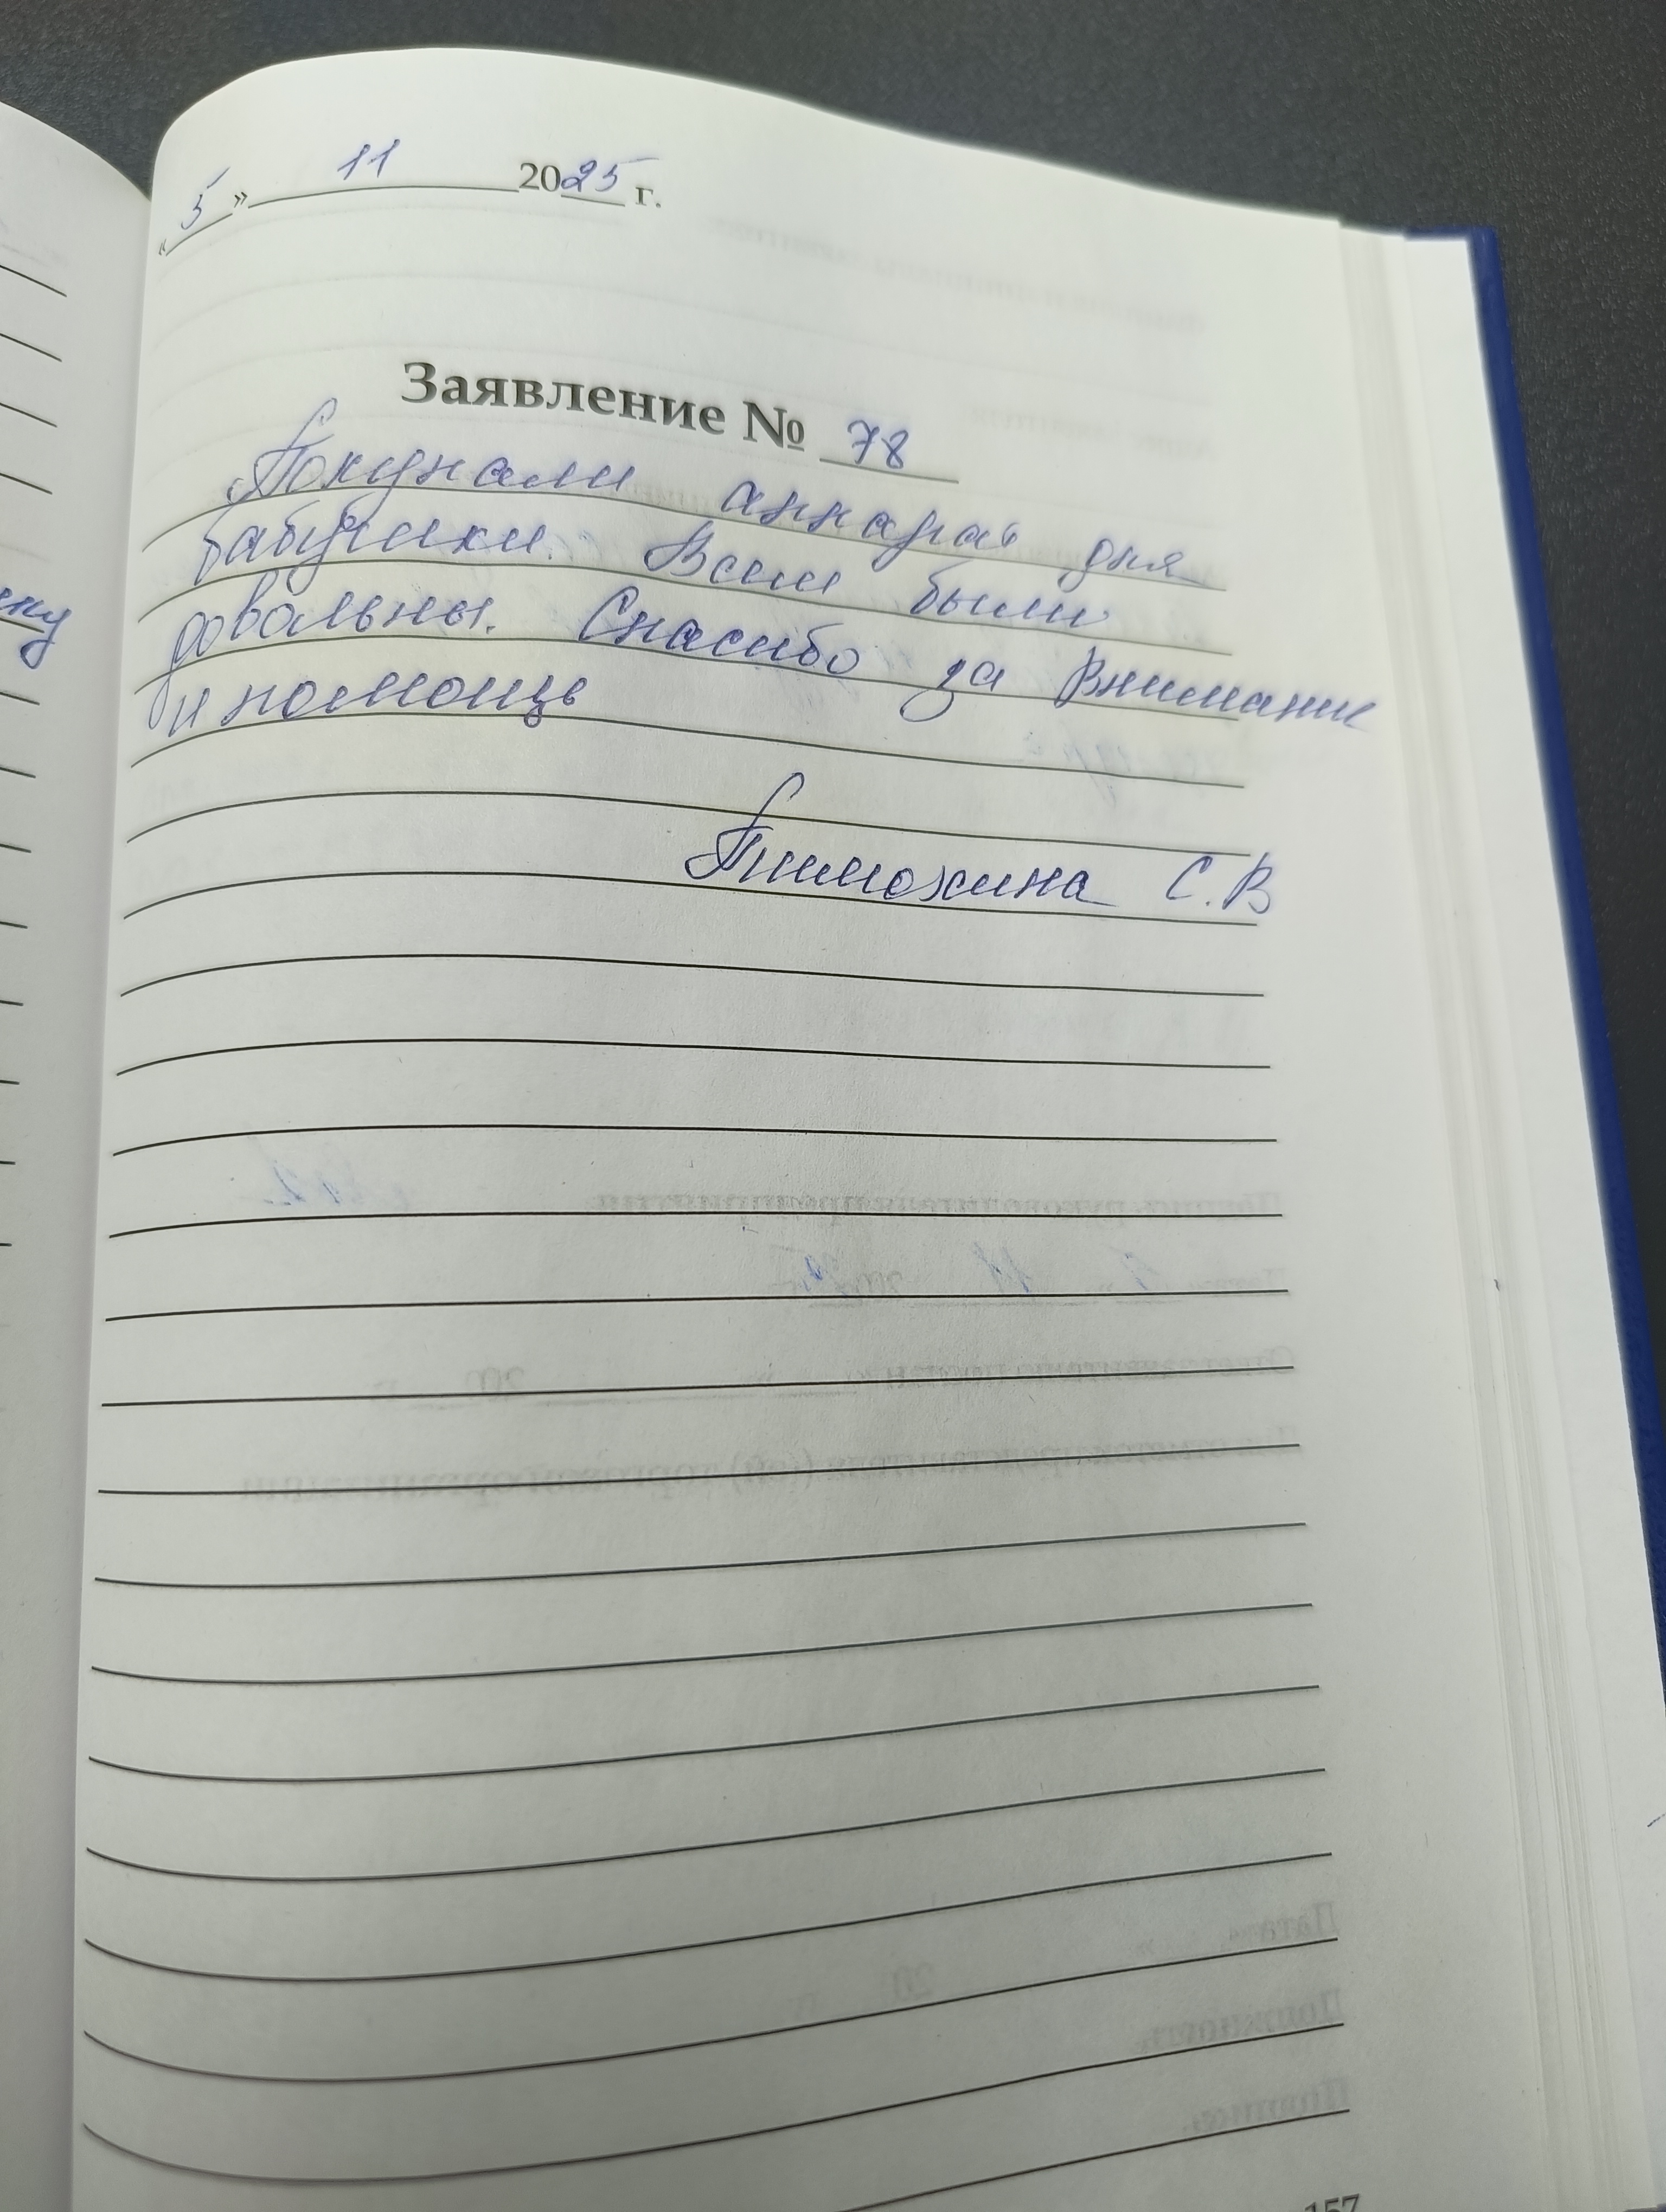 «5» 11 2025 г.
Заявление № 78
Покупали аппарат для
бабушки. Всем были
довольны. Спасибо за внимание
и помощь
Тимохина С.В
157